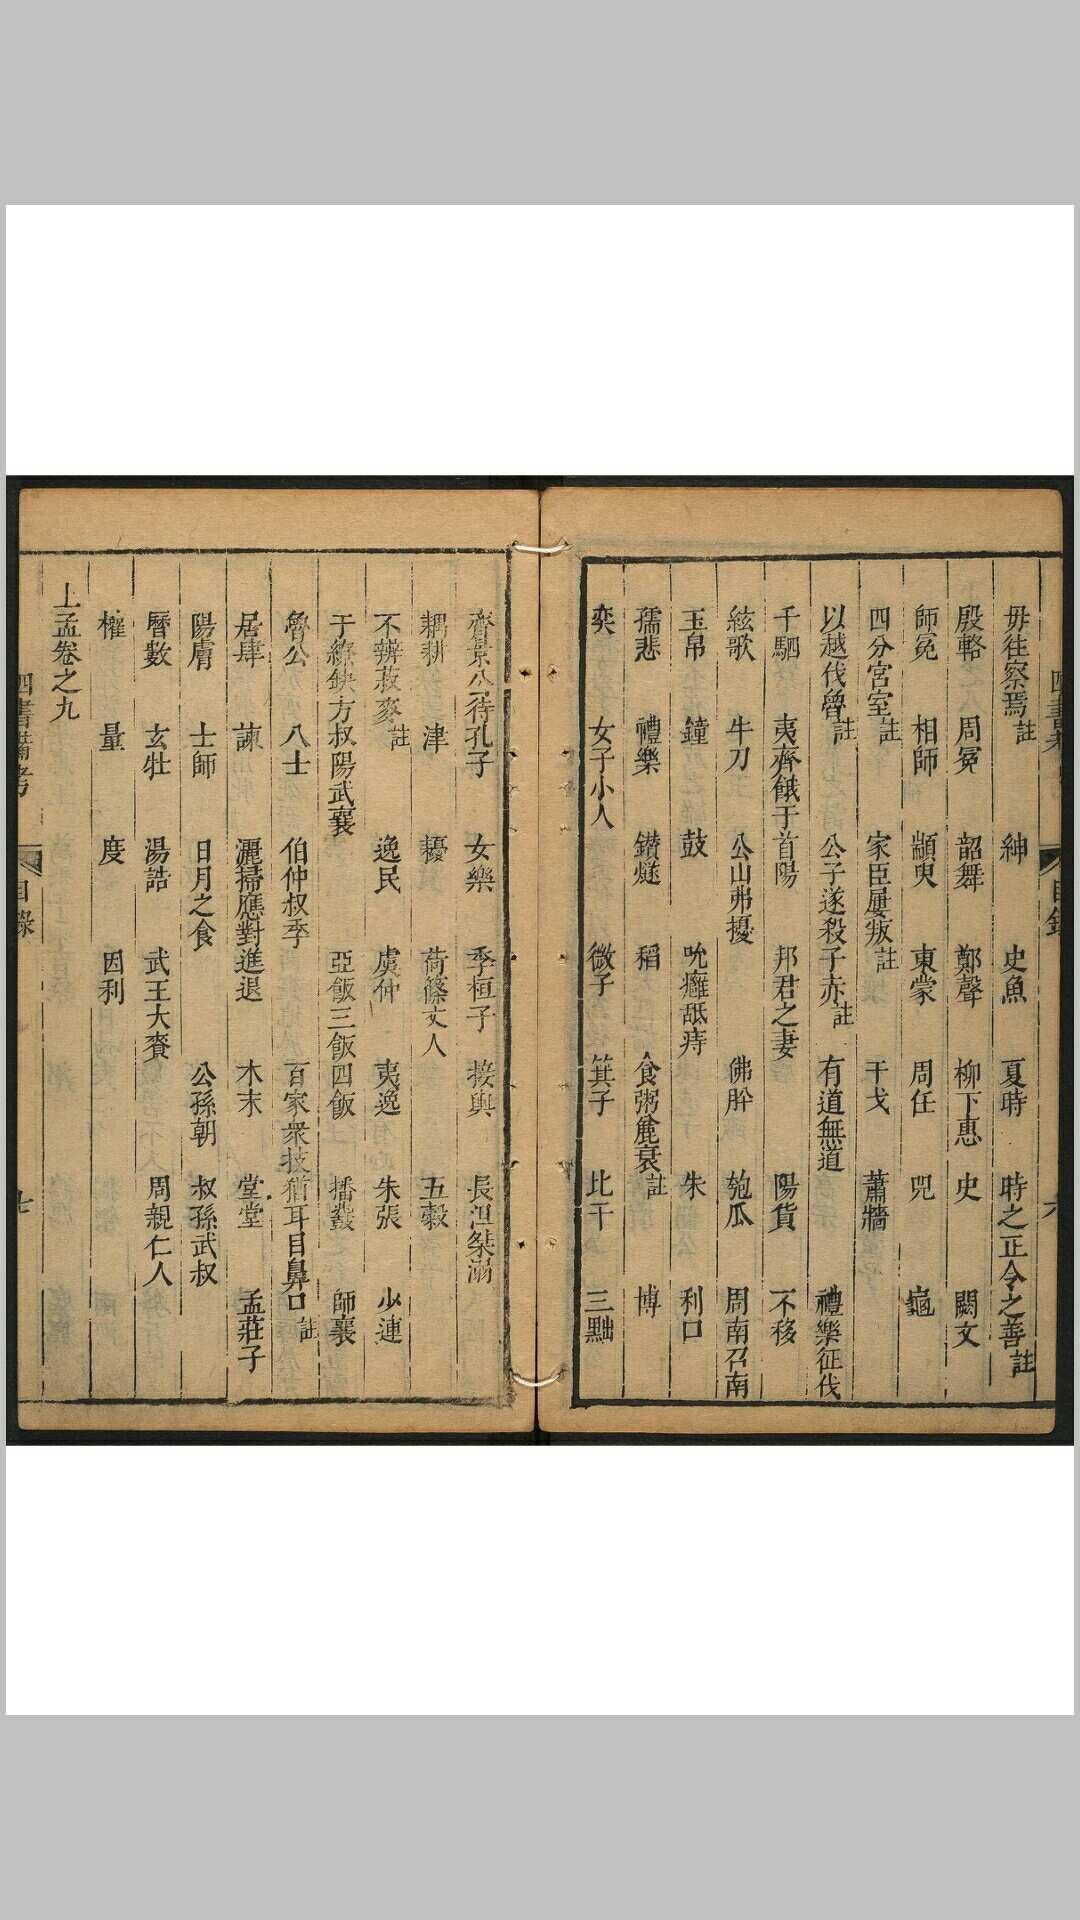 毋徃察焉註 紳 史魚 夏時 時之正令之善註
殷輅 周冕 韶舞 鄭聲 柳下惠 史 闕文
師冕 相師 顓臾 東蒙 周任 兕 龜
四分宮室註 家臣屢叛註 干戈 蕭牆
以越伐魯註 公子遂殺子赤註 有道無道 禮樂征伐
千駟 夷齊餓于首陽 邦君之妻 陽貨 不移
絃歌 牛刀 公山弗擾 佛肸 匏瓜 周南召南
玉帛 鐘 鼓 吮癰舐痔 朱 利口
孺悲 禮樂 鑚燧 稻 食粥麄衰註 博
奕 女子小人 微子 箕子 比干 三黜
目錄
六
齊景公待孔子 女樂 季桓子 接輿 長沮桀溺
耦耕 津 耰 荷篠丈人 五穀
不辨菽麥註 逸民 虞仲 夷逸 朱張 少連
于繚缺方叔陽武襄 亞飯三飯四飯 播鼗 師襄
魯公 八士 伯仲叔季 百家衆技猶耳目鼻口註
居肆 諫 灑掃應對進退 木末 堂堂 孟莊子
陽膚 士師 日月之食 公孫朝 叔孫武叔
曆數 玄牡 湯誥 武王大賚 周親仁人
權 量 度 因利
上孟卷之九
四書備考
目錄
七